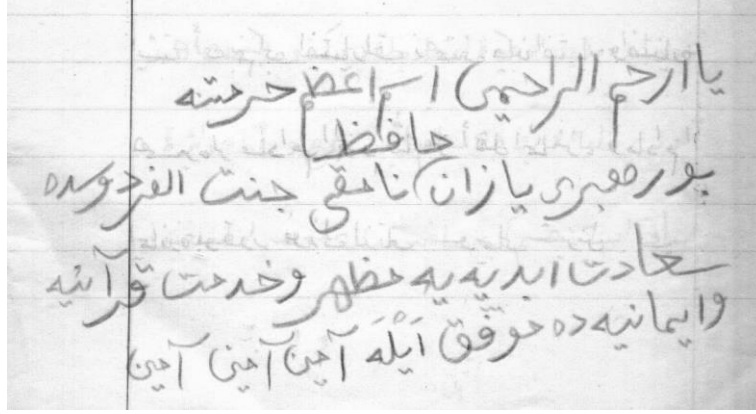 يا ارحم الراحمين اسم اعظم حرمتنه
حافظ
بو رهبرى يازان نامقى جنت الفردوسده
سعادت ابديه يه مظهر و خدمت قرآنيه
و ايمانيه ده موفق اَيْلَه آمين آمين آمين